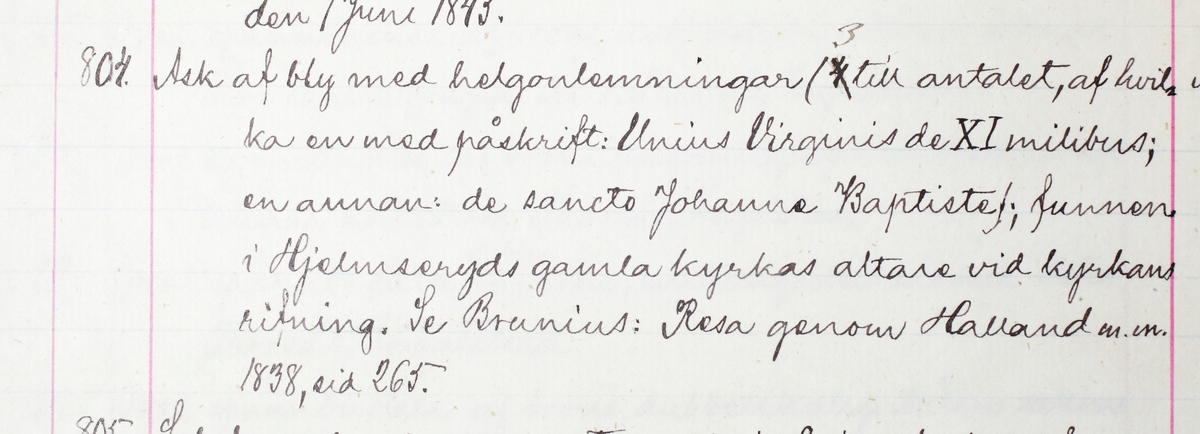 den 1 Juni 1843.
3
804. Ask af bly med helgonlemningar (4 till antalet, af hvil-
ka en med påskrift: Unius Virginis de XI milibus;
en annan: de sancto Johanne Baptiste); funnen
i Hjelmseryds gamla kyrkas altare vid kyrkans
rifning. Se Brunius: Resa genom Halland m.m.
1838, sid 265.
805